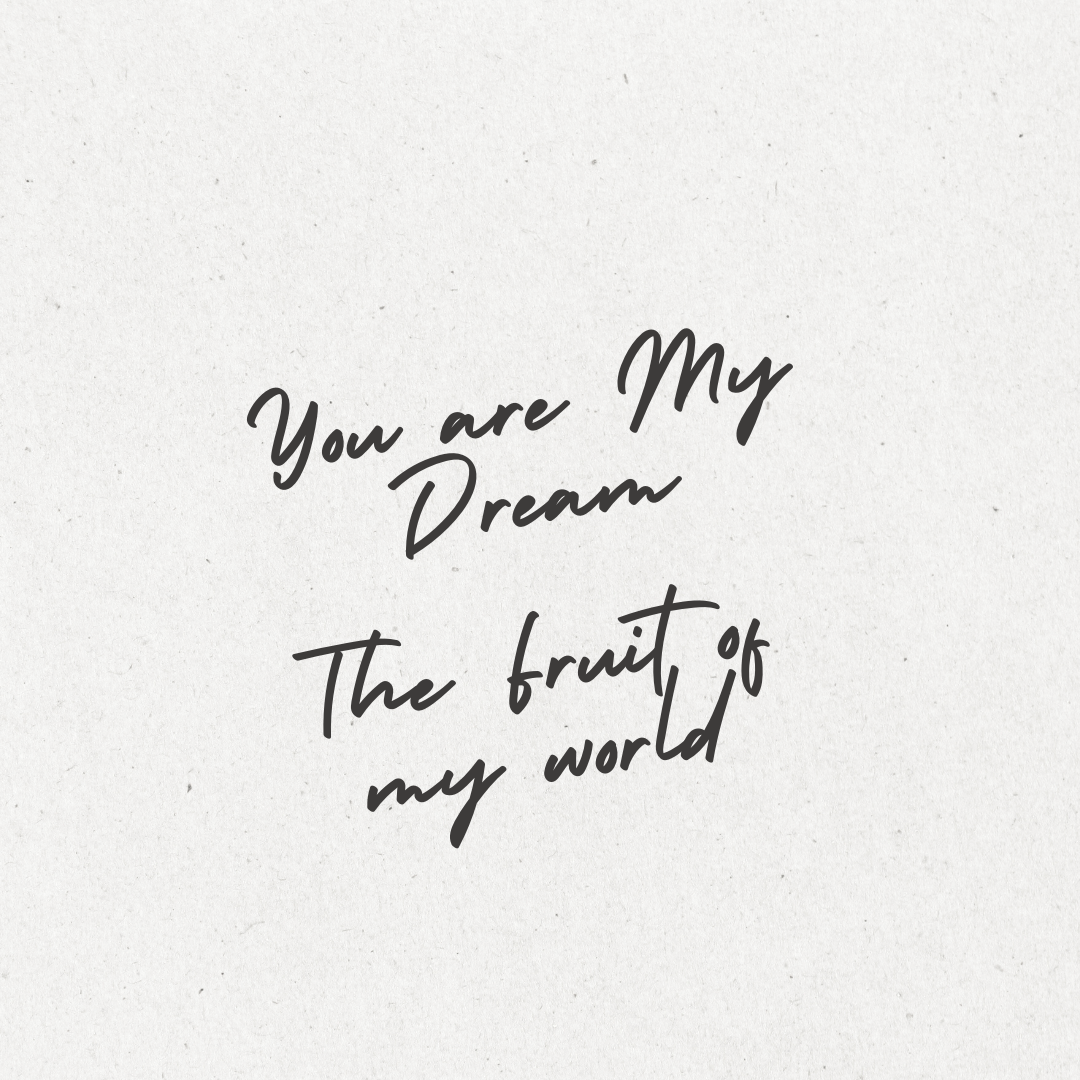 You are My
Dream
The fruit of
my world